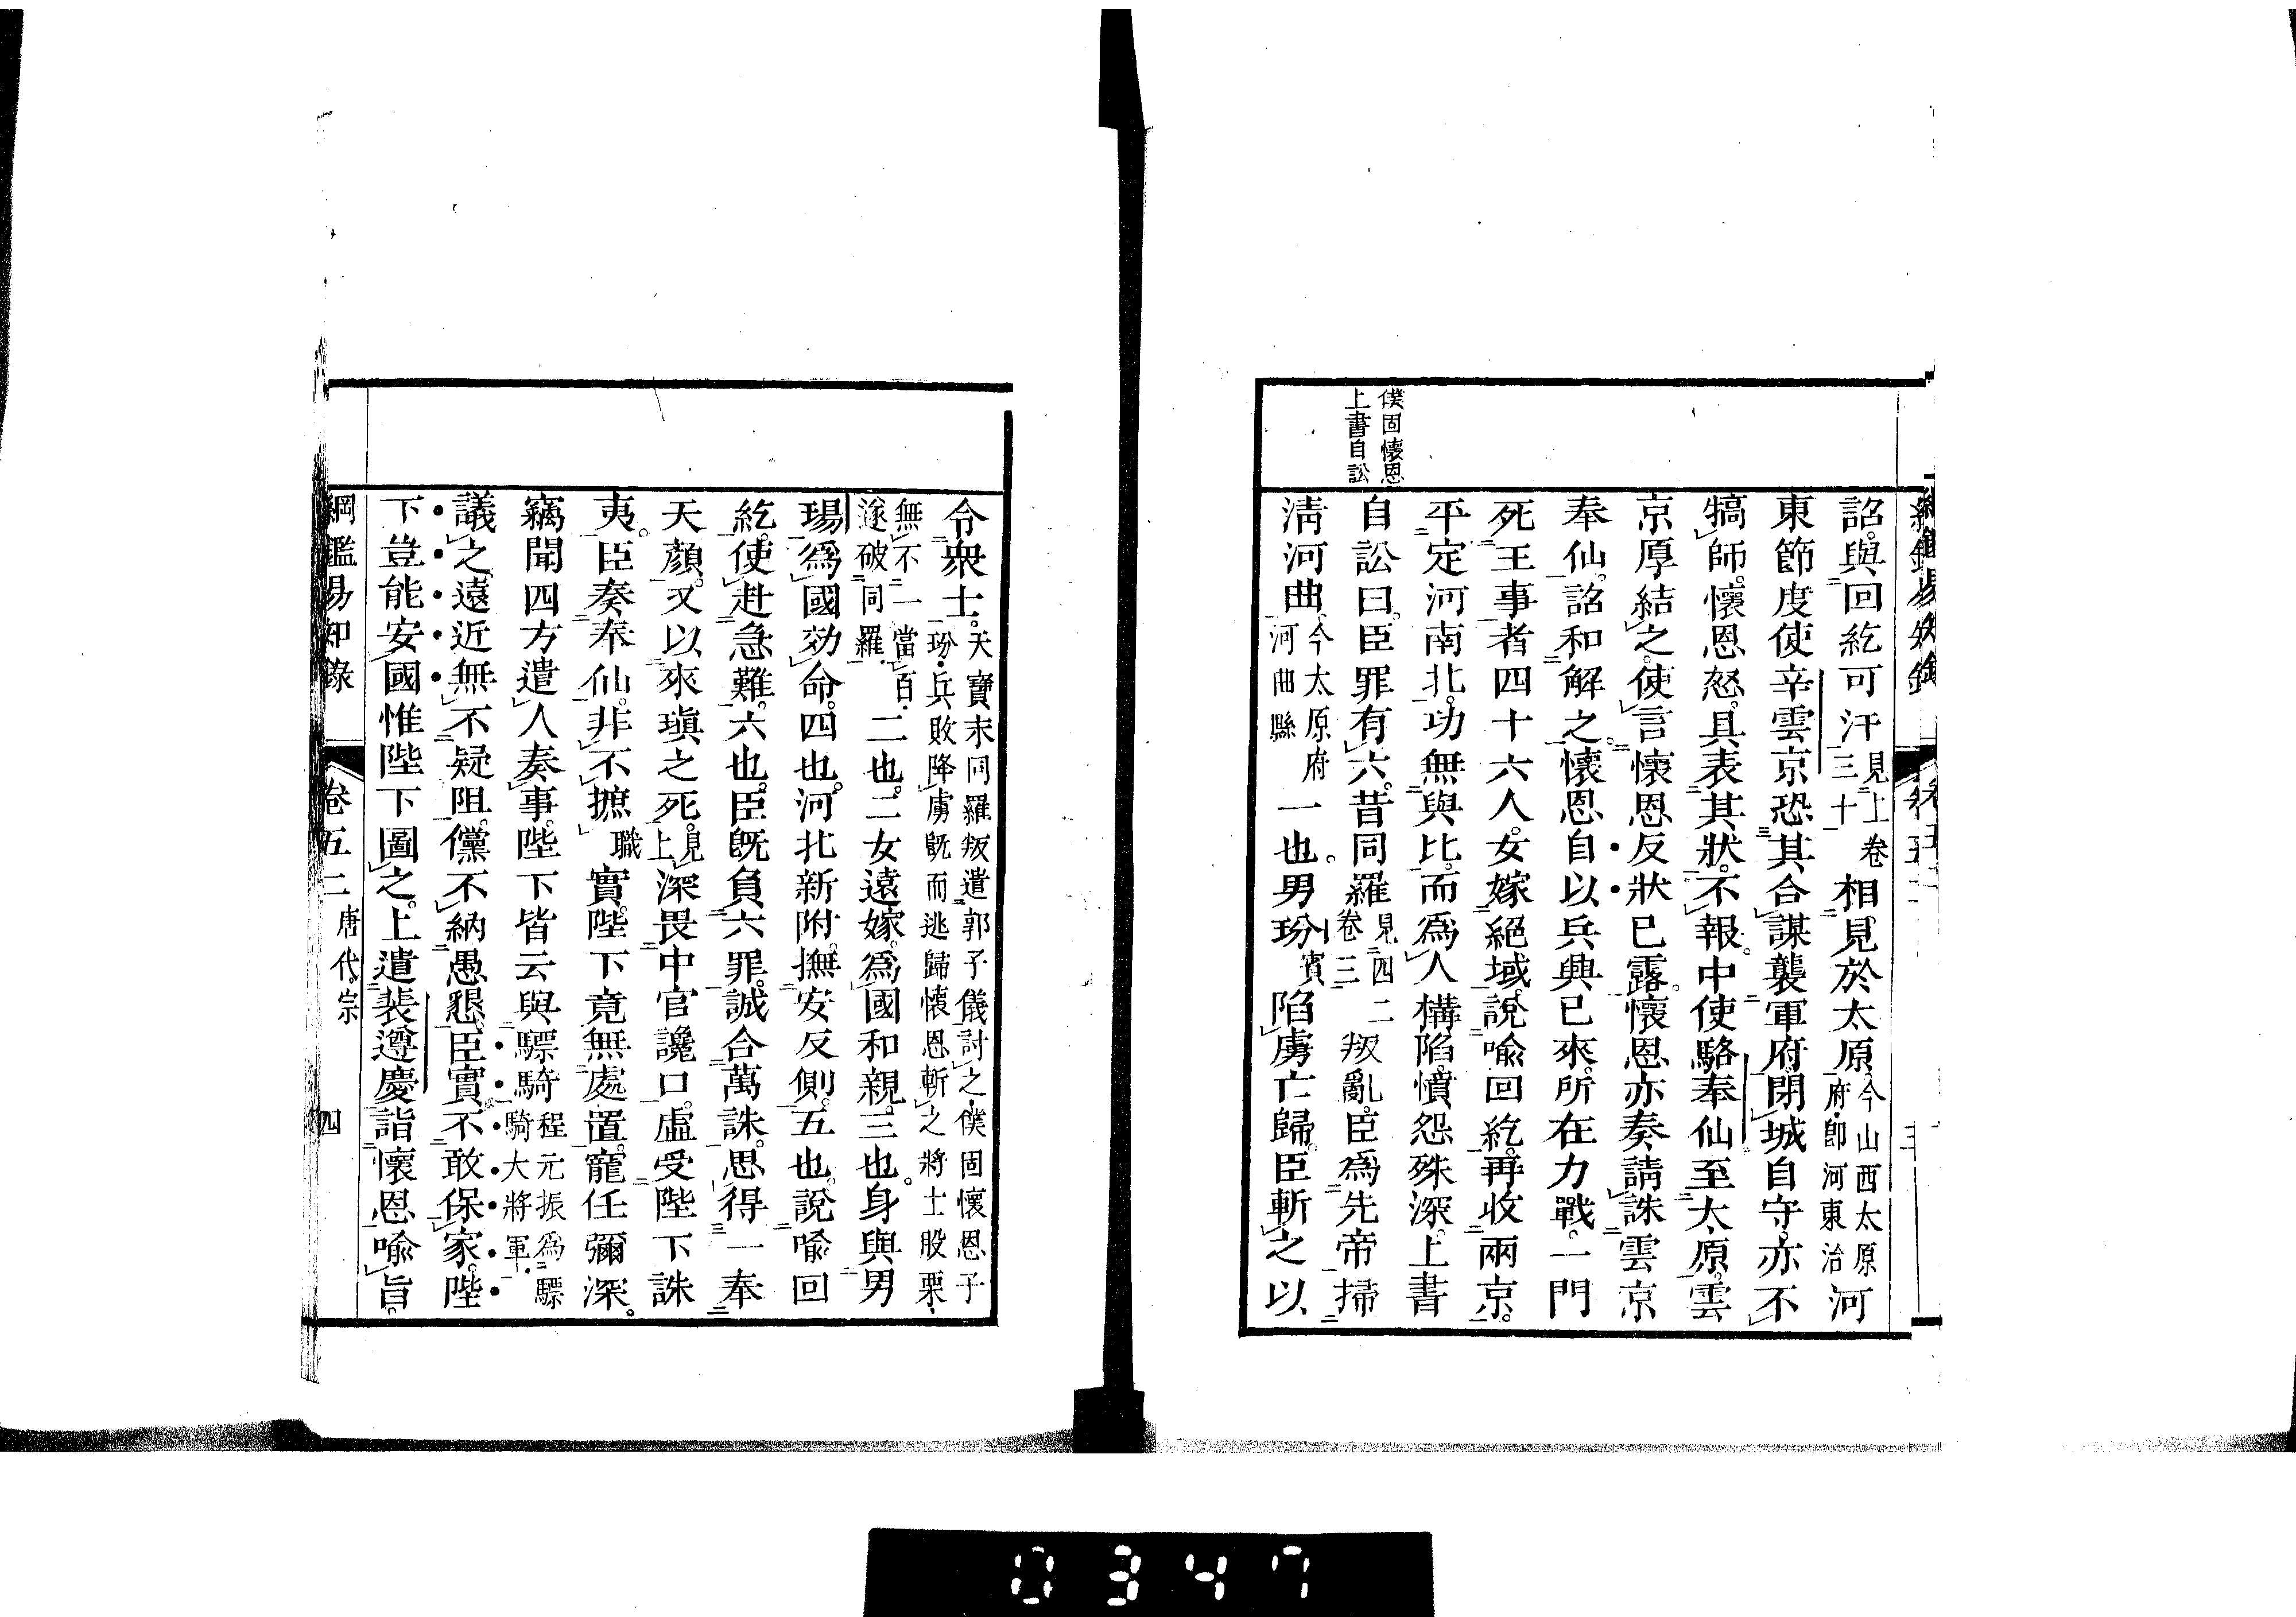 僕固懷恩
上書自訟
詔與回紇可汗見上卷三十相見於太原今山西太原府卽河東治河
東節度使辛雲京恐其合謀襲軍府閉城自守亦不
犒師懷恩怒具表其狀不報中使駱奉仙至太原雲
京厚結之使言懷恩反狀已露懷恩亦奏請誅雲京
奉仙詔和解之懷恩自以兵興已來所在力戰一門
死王事者四十六人女嫁絕域說喩回紇再收兩京
平定河南北功無與比而爲人構陷憤怨殊深上書
自訟曰臣罪有六昔同羅見四二卷三叛亂臣爲先帝掃
淸河曲今太原府河曲縣一也男玢賓陷虜亡歸臣斬之以
令衆士天寶末同羅叛遣郭子儀討之僕固懷恩子玢兵敗降虜旣而逃歸懷恩斬之將士股栗
無不一當百遂破同羅二也二女遠嫁爲國和親三也身與男
瑒爲國効命四也河北新附撫安反側五也說喩回
紇使赴急難六也臣旣負六罪誠合萬誅思得一奉
天顏又以來瑱之死見上深畏中官讒口虛受陛下誅
夷臣奏奉仙非不摭職實陛下竟無處置寵任彌深
竊聞四方遣人奏事陛下皆云與驃騎程元振爲驃騎大將軍
議之遠近無不疑阻儻不納愚懇臣實不敢保家陛
下豈能安國惟陛下圖之上遣裴遵慶詣懷恩喩旨
綱鑑易知錄 卷五二 唐代宗 四
0347